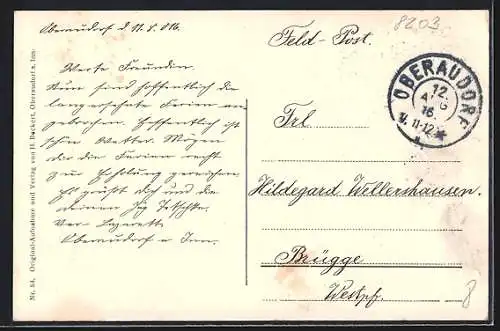 Oberaudorf d. 11. 8. 1916.
8203
Feld-Post.
OBERAUDORF
12.
AUG
16.
11-12
Werte Freundin.
Nun sind hoffentlich die
langersehnte Ferien an
gebrochen. Hoffentlich ist
schön Wetter. Mögen
dir die Ferien recht
zur Erholung gereichen.
Es grüßt dich und die
deinen
Res. Lazarett
Oberaudorf a. Inn.
Frl.
Hildegard Wellershausen.
Brügge
Westpf.
8
Nr. 84. Original-Aufnahme und Verlag von H. Beckert, Oberaudorf a. Inn.